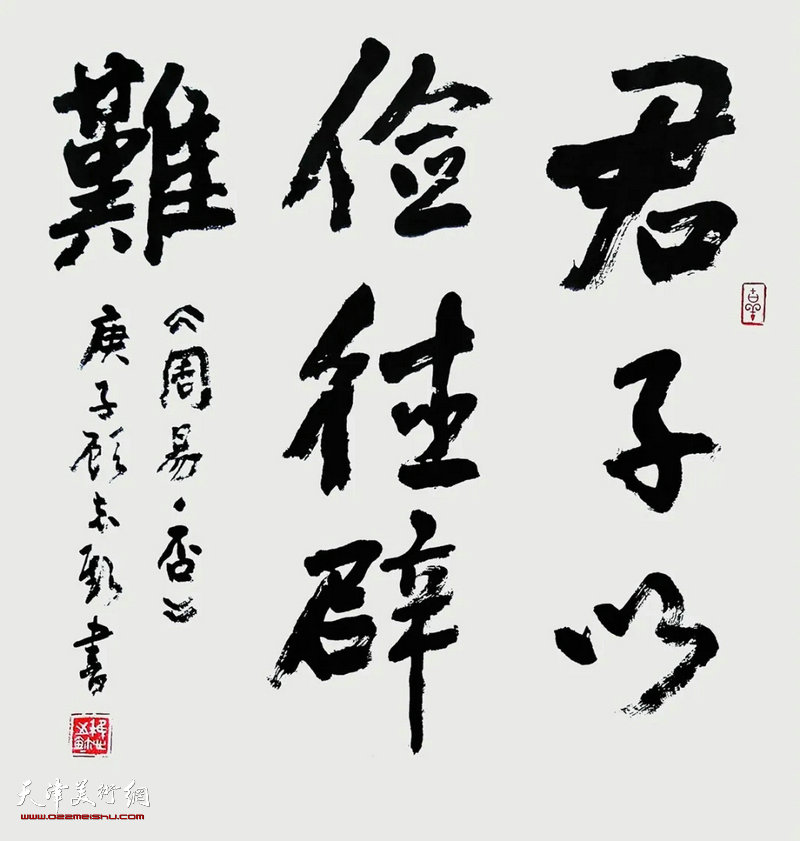 君子以
俭德辟
難
《周易·否》
庚子顾志新書
天津美術網
www.022meishu.com